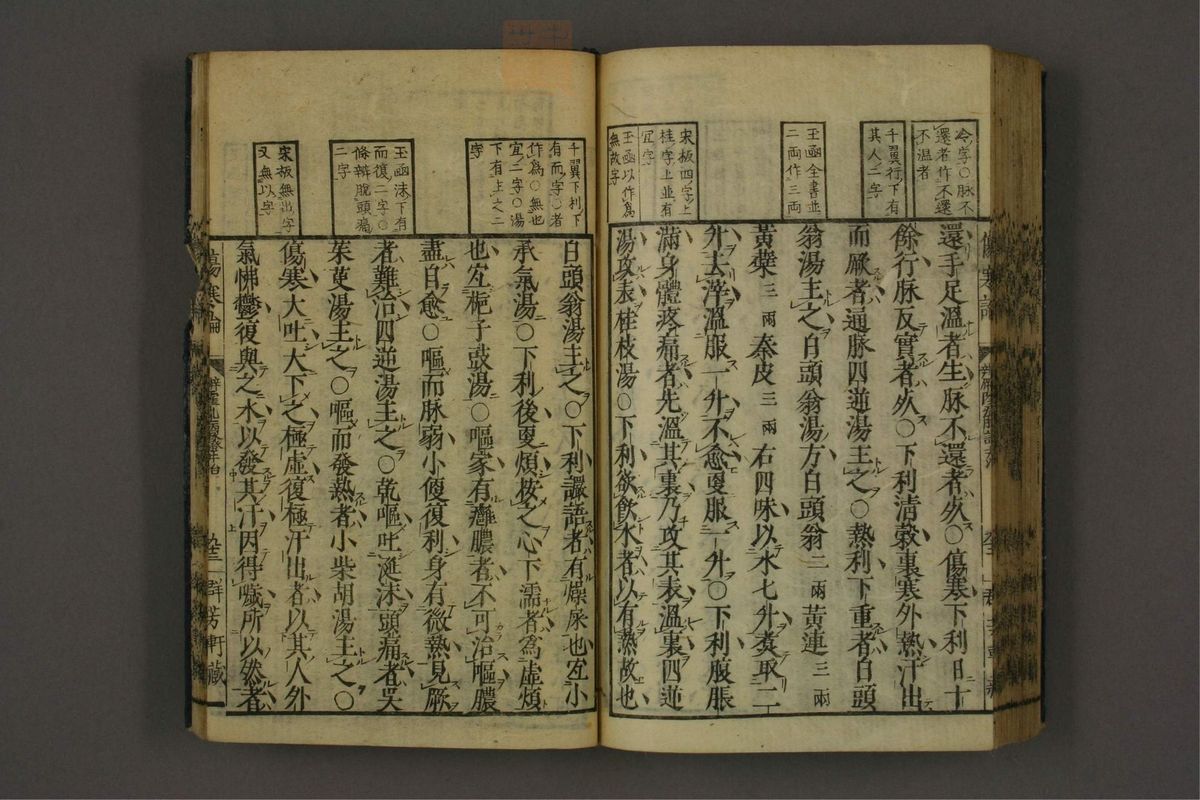 冷字○脉不
還者作不還
不温者
千翼行下有
其人二字
玉函全書並
二両作三両
宋板四字上
桂字上並有
宜字
玉函以作為
無故字
還手足溫者生脉不還者死○傷寒下利日十
餘行脉反實者死○下利清穀裏寒外熱汗出
而厥者通脉四逆湯主之○熱利下重者白頭
翁湯主之白頭翁湯方白頭翁二兩黃連三兩
黃蘗三兩秦皮三兩右四味以水七升煑取二
升去滓溫服一升不愈更服一升○下利腹脹
滿身體疼痛者先溫其裏乃攻其表溫裏四逆
湯攻表桂枝湯○下利欲飲水者以有熱故也
千翼下利下
有而字○者
作為○無也
宜二字○湯
下有主之二
字
玉函沫下有
而復二字○
條辨脫頭痛
二字
宋板無出字
又無以字
白頭翁湯主之○下利讝語者有燥屎也宜小
承氣湯○下利後更煩按之心下濡者為虛煩
也宜梔子豉湯○嘔家有癰膿者不可治嘔膿
盡自愈○嘔而脉弱小便復利身有微熱見厥
者難治四逆湯主之○乾嘔吐涎沫頭痛者吳
茱萸湯主之○嘔而發熱者小柴胡湯主之○
傷寒大吐大下之極虛復極汗出者以其人外
氣怫鬱復與之水以發其汗因得噦所以然者
傷寒論
群芳軒藏